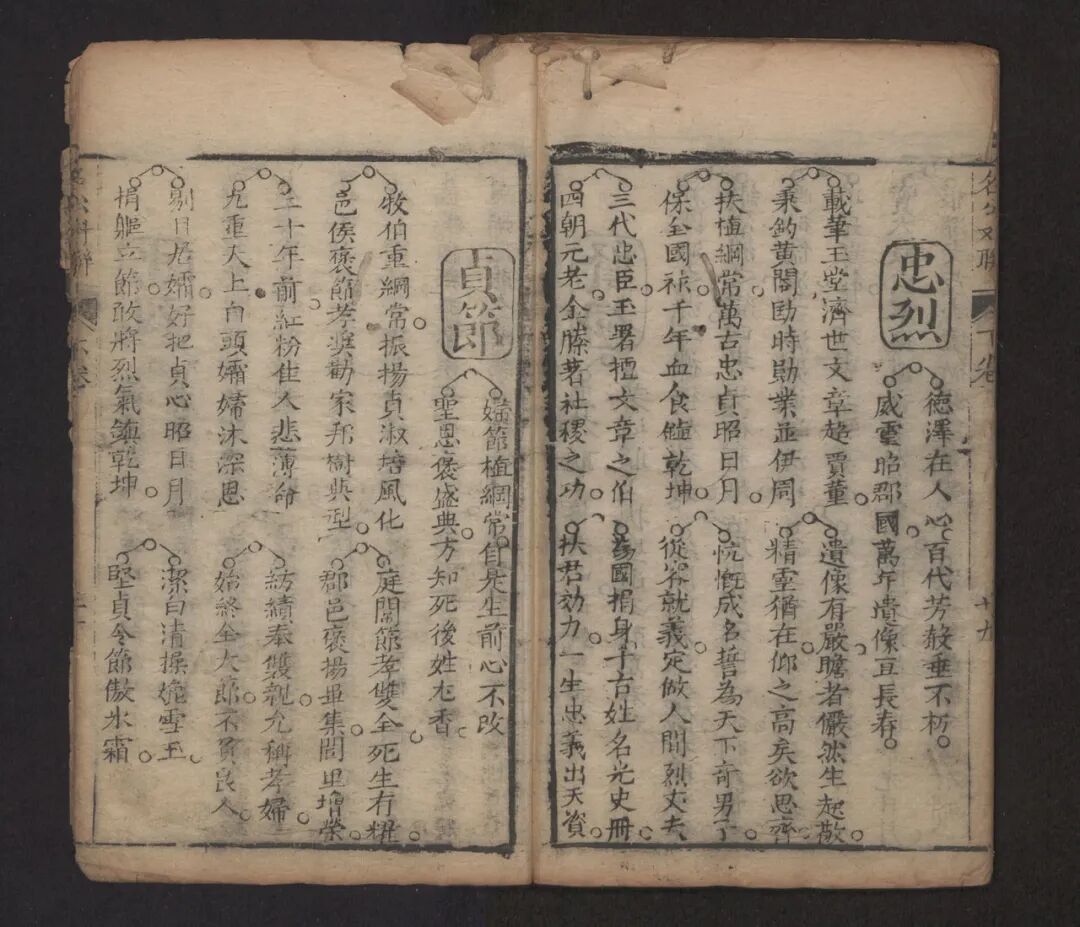 下卷
十九
忠烈
德澤在人心百代芳垂不朽
威靈昭郡國萬年遺像亘長春
載筆玉堂濟世文章超賈董
秉鈞黃閣時勛業並伊周
遺像有嚴瞻者儼然生起敬
精霊猶在仰之高矣欲思齊
扶植綱常萬古忠貞昭日月
保全國祚千年血食乾坤
忼慨成名誓為天下奇男子
從容就義定做人間烈丈夫
三代忠臣玉署擅文章之伯
四朝元老金滕著社稷之功
為國捐身千古姓名光史冊
扶君効力一生忠義出天資
貞節
節植綱常自是生前心不改
聖恩褒盛典方知死後姓尤香
牧伯重綱常振揚貞淑培風化
邑侯褒節孝奬勸家邦樹典型
庭闈節孝雙全死生有耀
郡邑褒揚畢集閭里增榮
二十年前紅粉佳人悲薄命
九重天上白頭孀婦沐深恩
紡績奉雙親允稱孝婦
始終全大節不負良人
剔目居孀好把貞心昭日月
捐軀立節敢將烈氣鎮乾坤
潔白清操媲雪玉
堅貞令節傲氷霜